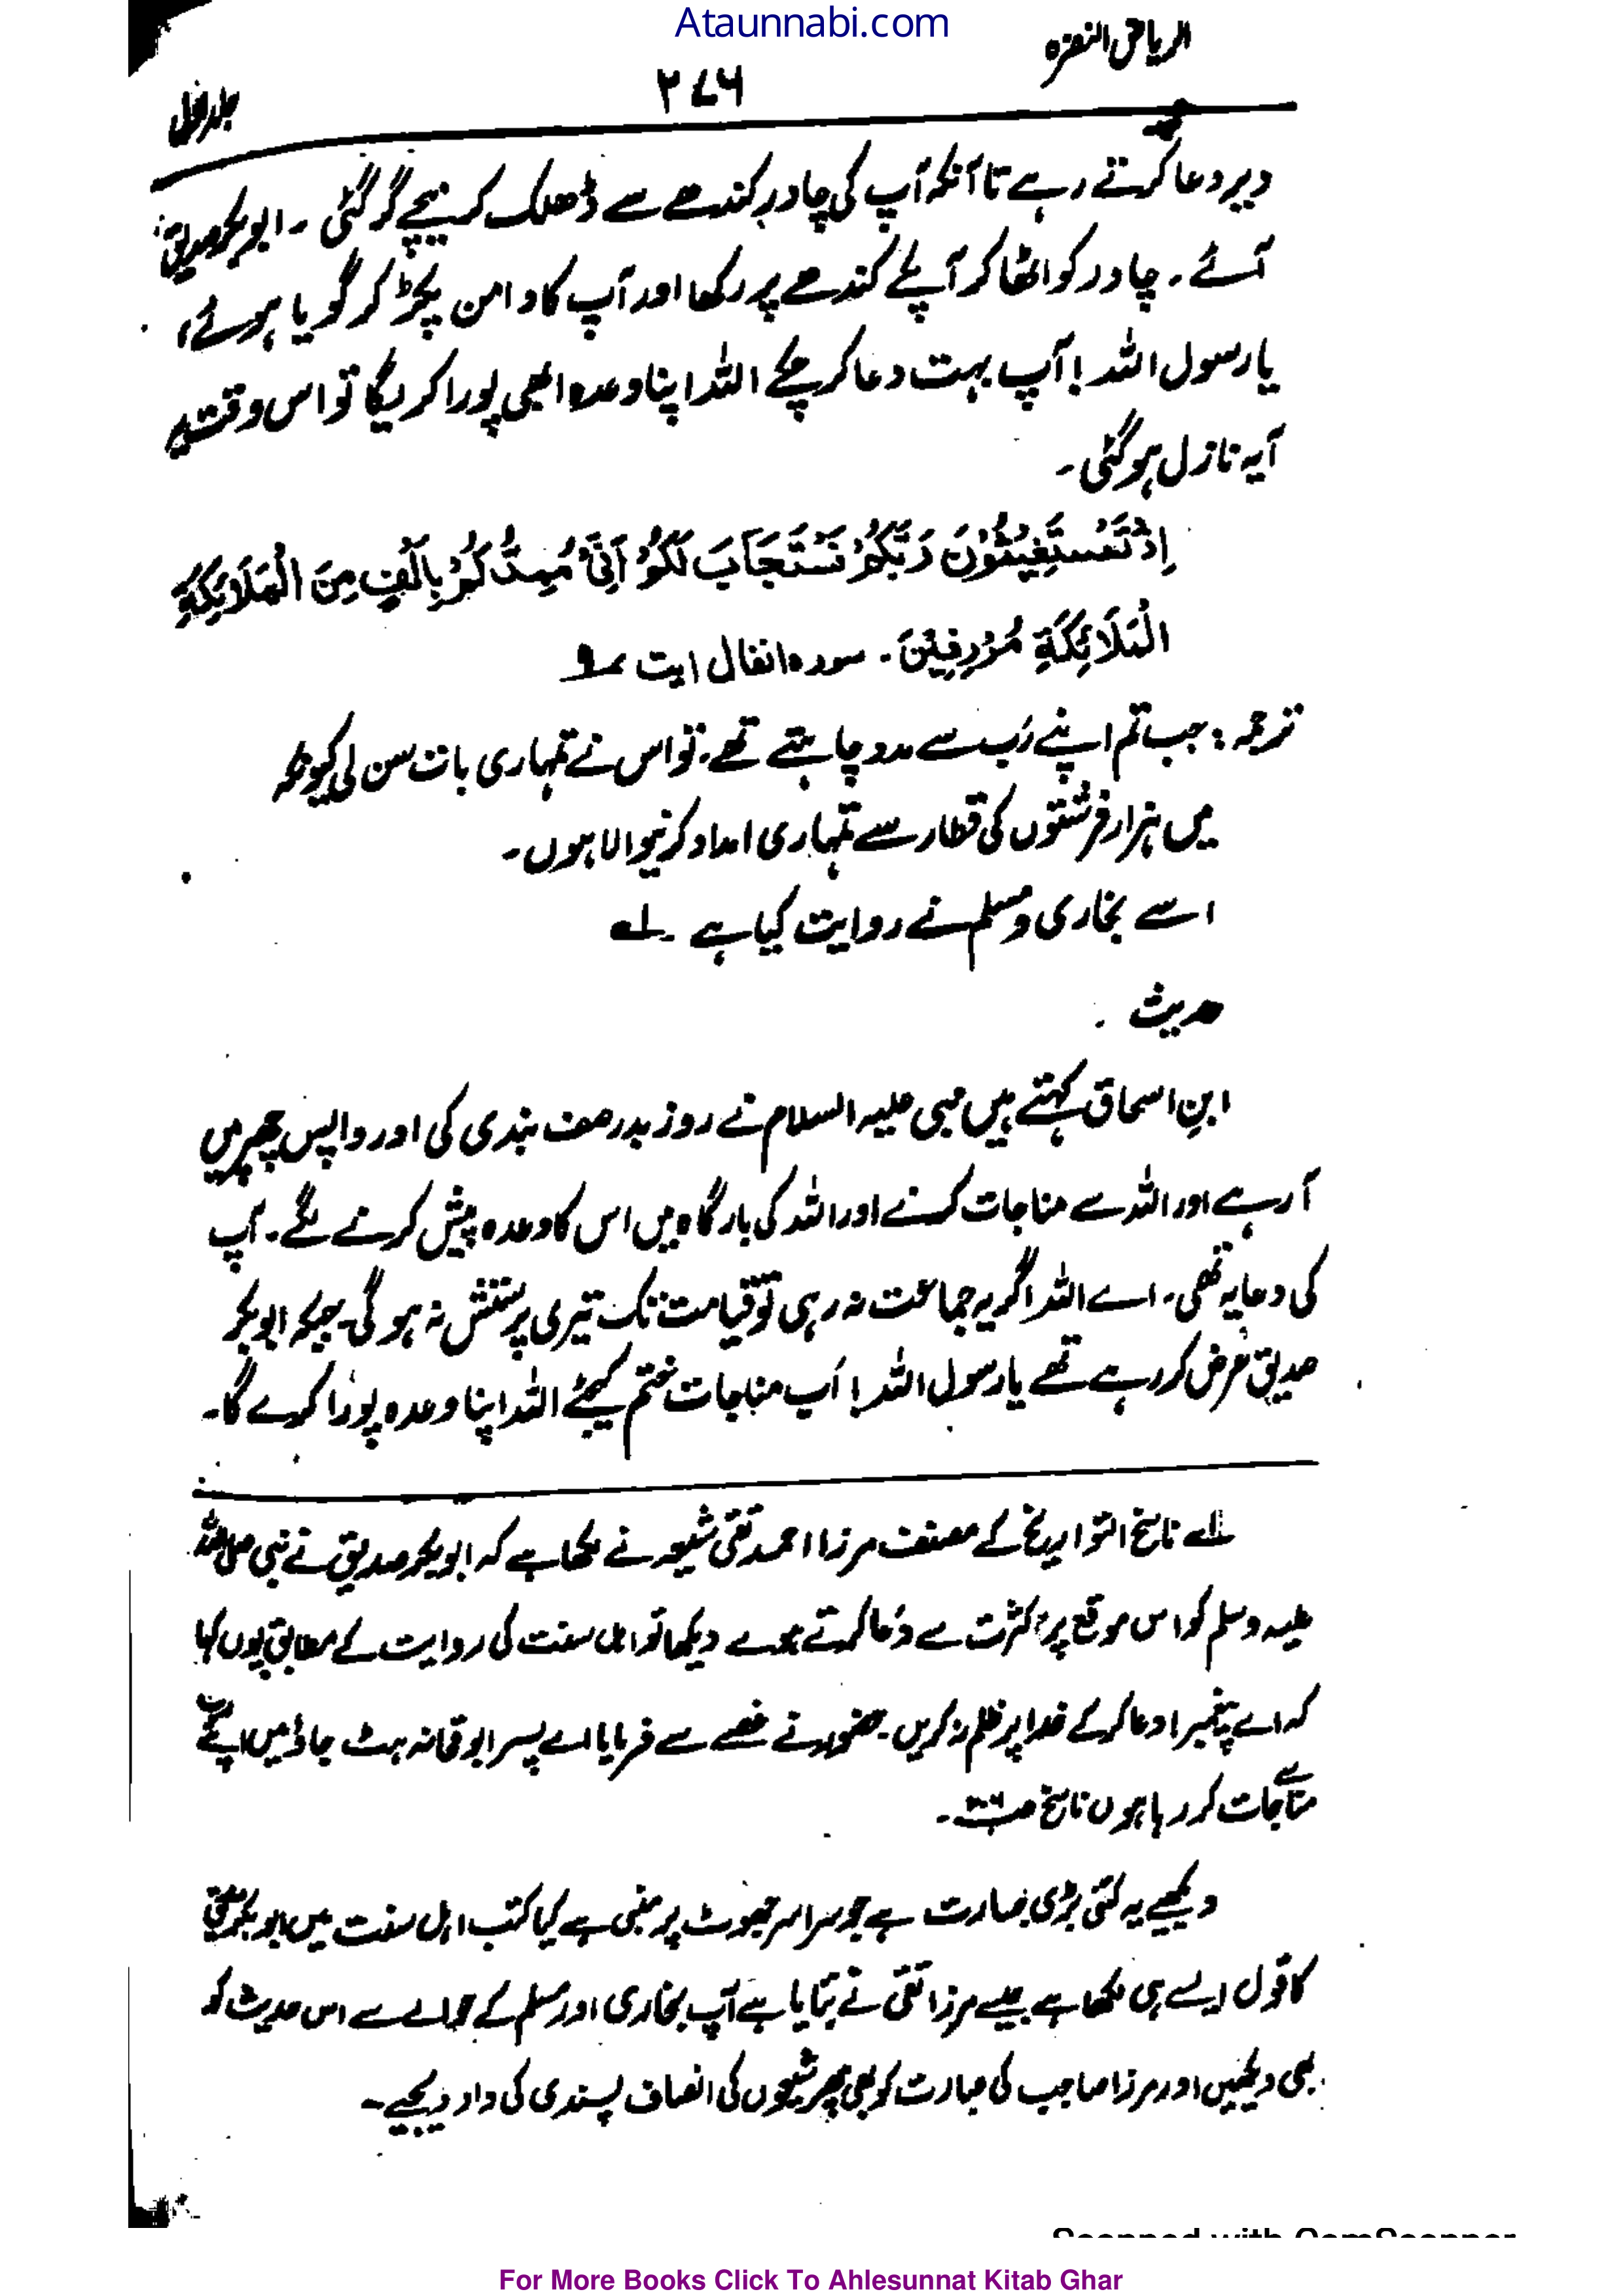 Ataunnabi.com
الریاض النضرہ
۲۷۶
جلد اول
دیر دعا کرتے رہے تا آنکہ آپ کی چادر کندھے سے ڈھلک کر نیچے گر گئی۔ ابوبکر صدیقؓ
آئے۔ چادر کو اٹھا کر آپکے کندھے پر رکھا اور آپ کا دامن پکڑ کر گویا ہوئے،
یا رسول اللہ! آپ بہت دعا کر چکے اللہ اپنا وعدہ ابھی پورا کریگا تو اس وقت یہ
آیہ نازل ہو گئی۔
اِذْ تَسْتَغِیْثُوْنَ رَبَّکُمْ فَاسْتَجَابَ لَکُمْ اَنِّیْ مُمِدُّکُمْ بِاَلْفٍ مِنَ الْمَلَائِکَةِ
الْمَلَائِکَةِ مُرْدِفِیْنَ۔ سورہ انفال ایت ۹
ترجمہ: جب تم اپنے رَب سے مدد چاہتے تھے۔ تو اس نے تمہاری بات سن لی کیونکہ
میں ہزار فرشتوں کی قطار سے تمہاری امداد کرنیوالا ہوں۔
اسے بخاری و مسلم نے روایت کیا ہے۔ لے
حدیث
ابنِ اسحاق کہتے ہیں نبی علیہ السلام نے روز بدر صف بندی کی اور واپس چھپر میں
آ رہے اور اللہ سے مناجات کرنے اور اللہ کی بارگاہ میں اس کا وعدہ پیش کرنے لگے۔ آپ
کی دعا یہ تھی۔ اے اللہ اگر یہ جماعت نہ رہی تو قیامت تک تیری پرستش نہ ہو گی۔ جبکہ ابوبکر
صدیق عرض کر رہے تھے یا رسول اللہ! آپ مناجات ختم کیجئے اللہ اپنا وعدہ پورا کرے گا۔
لے ناسخ التواریخ کے مصنف مرزا احمد تقی شیعہ نے لکھا ہے کہ ابوبکر صدیق نے نبی صلی اللہ
علیہ وسلم کو اس موقع پر کثرت سے دُعا کرتے ہوے دیکھا تو اہل سنت کی روایت کے مطابق یوں کہا
کہ اے پیغمبر! دعا کر کے خدا پر ظلم نہ کریں۔ حضور نے غصے سے فرمایا اے پسر ابو قحافہ ہٹ جاؤ میں اپنے رب
سے مناجات کر رہا ہوں ناسخ
دیکھیے یہ کتنی بڑی جسارت ہے جو سراسر جھوٹ پر مبنی ہے کیا کتب اہل سنت میں ابوبکر صدیق
کا قول ایسے ہی لکھا ہے جیسے مرزا تقی نے بتایا ہے آپ بخاری اور مسلم کے حوالے سے اس حدیث کو
بھی دیکھیں اور مرزا صاحب کی عبارت کو بھی پھر شیعوں کی انصاف پسندی کی داد دیجیے۔
Scanned with CamScanner
For More Books Click To Ahlesunnat Kitab Ghar